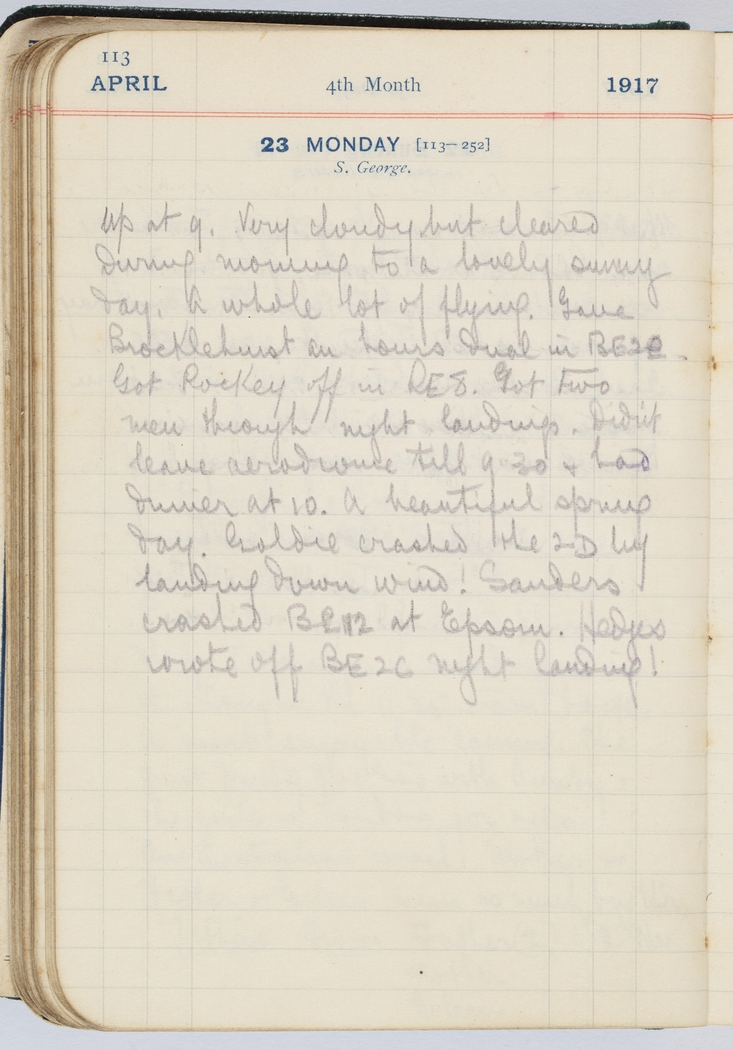 113
APRIL 4th Month 1917
23 MONDAY [113–252]
S. George.
Up at 9. Very cloudy but cleared
during morning to a lovely sunny
day. A whole lot of flying. Gave
Brocklehurst an hours dual in BE2E.
Got Rockey off in RE8. Got two
men through night landings. Didn't
leave aerodrome till 9-30 & had
dinner at 10. A beautiful spring
day. Goldie crashed the 2D by
landing down wind! Sanders
crashed BE12 at Epsom. Hedges
wrote off BE2C night landing!